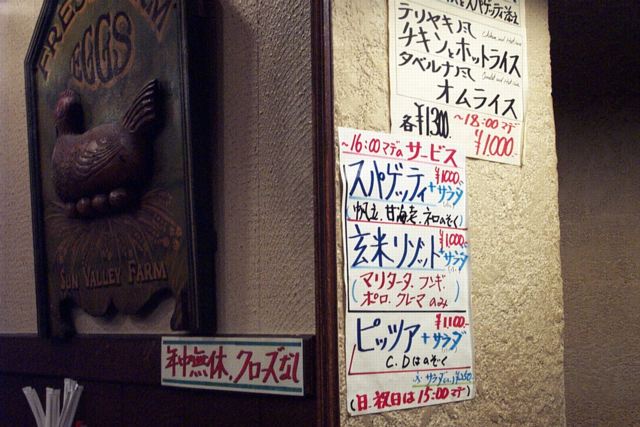 FRESH FARM
EGGS
SUN VALLEY FARM
年中無休、クローズなし
スパゲッティ添え
テリヤキ風
チキンとホットライス
タベルナ風
オムライス
各¥1,300.
~18:00マデ
¥1,000.
~16:00マデのサービス
スパゲッティ ¥1000.
+サラダ
(帆立、甘海老、ネロのぞく)
玄米リゾット ¥1,000.
+サラダ
(マリナータ、フンギ、
ポロ、クレーマのみ)
ピッツァ ¥1,100.
+サラダ
C.Dはのぞく
(日、祝日は15:00マデ)